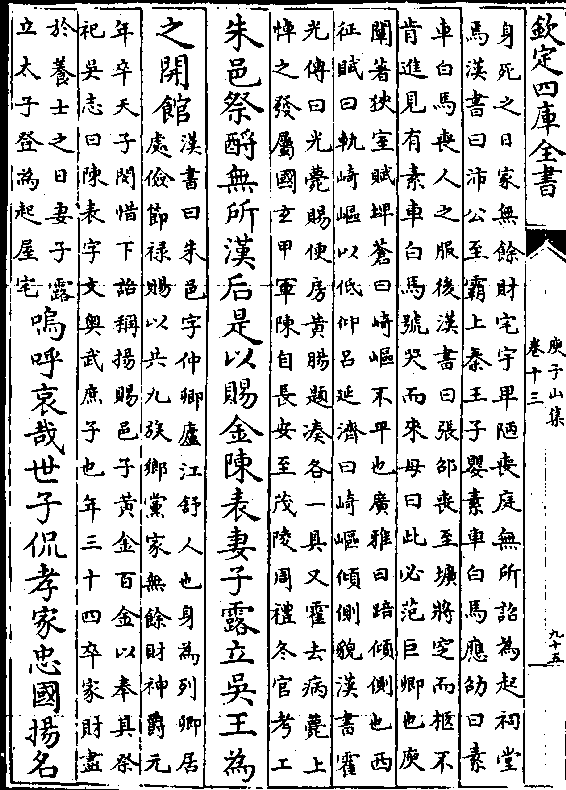 欽定四庫全書
庾子山集
卷十三
九十五
身死之日家無餘財宅宇卑陋喪庭無所詔為起祠堂
馬漢書曰沛公至霸上秦王子嬰素車白馬應劭曰素
車白馬喪人之服後漢書曰張邵喪至壙將窆而柩不
肯進見有素車白馬號哭而來母曰此必范巨卿也庾
闡著狹室賦埤蒼曰崎嶇不平也廣雅曰踦傾側也西
征賦曰軌崎嶇以低仰呂延濟曰崎嶇傾側貌漢書霍
光傳曰光薨賜便房黄腸題凑各一具又霍去病薨上
悼之發屬國玄甲軍陳自長安至茂陵周禮冬官考工
朱邑祭酹無所漢后是以賜金陳表妻子露立吳王為
之開館
漢書曰朱邑字仲卿廬江舒人也身為列卿居
處儉節禄賜以共九族鄉黨家無餘財神爵元
年卒天子閔惜下詔稱揚賜邑子黄金百金以奉其祭
祀吳志曰陳表字文奥武庶子也年三十四卒家財盡
於養士之日妻子露
立太子登為起屋宅
嗚呼哀哉世子侃孝家忠國揚名